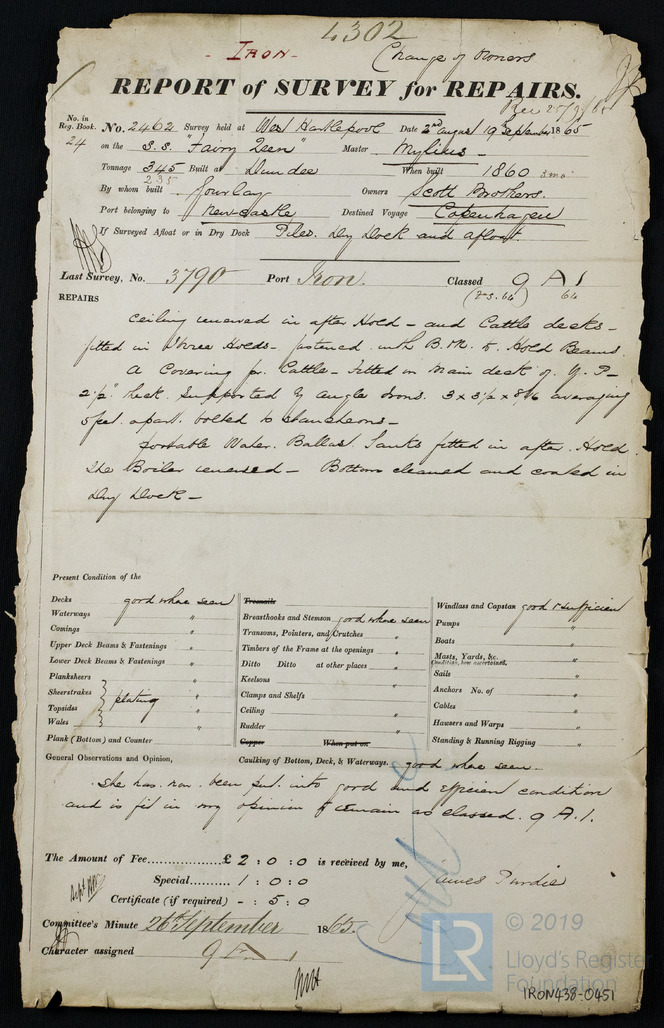 4302
- IRON -
Change of Owners
REPORT of SURVEY for REPAIRS.
Rec 25/9/65
No. in Reg. Book. No. 2462 Survey held at West Hartlepool Date 2nd august 19 September 1865
24 on the S.S. "Fairy Queen" Master
Tonnage 345 Built at Dundee When built 1860 5 mo
235
By whom built Gourlay Owners Scott Brothers.
Port belonging to Newcastle Destined Voyage Copenhagen
If Surveyed Afloat or in Dry Dock Dry Dock and afloat.
Last Survey, No. 3790 Port Iron. Classed 9 A 1
(2-3.64) 64
REPAIRS
Ceiling renewed in after Hold - and Cattle decks -
fitted in Three Holds - fastened with B. M. to Hold Beams.
A Covering for Cattle - fitted on Main deck of Y. P -
2 1/2" thick. Supported by angle Irons. 3 x 3 1/2 x 5/16 averaging
5 feet apart. bolted to stancheons -
Portable Water Ballast Tanks fitted in after Hold.
The Boiler renewed - Bottom cleaned and coated in
Dry Dock -
Present Condition of the
Decks good where seen
Waterways "
Comings "
Upper Deck Beams & Fastenings "
Lower Deck Beams & Fastenings "
Planksheers "
Sheerstrakes } plating "
Topsides "
Wales "
Plank (Bottom) and Counter
Treenails
Breasthooks and Stemson good where seen
Transoms, Pointers, and Crutches "
Timbers of the Frame at the openings "
Ditto Ditto at other places "
Keelsons "
Clamps and Shelfs
Ceiling "
Rudder "
Copper When put on
Windlass and Capstan good & sufficien
Pumps "
Boats "
Masts, Yards, &c. "
Condition, how ascertained.
Sails "
Anchors No. of "
Cables "
Hausers and Warps "
Standing & Running Rigging "
General Observations and Opinion, Caulking of Bottom, Deck, & Waterways. good where seen -
She has now been put into good and efficien condition
and is fit in my opinion to remain as classed. 9 A. 1.
The Amount of Fee............... £ 2 : 0 : 0 is received by me,
Special.......... 1 : 0 : 0 James Purdie
Certificate (if required) - : 5 : 0
Committee's Minute 26th September 1865
Character assigned 9 A 1
© 2019
LR
Lloyd's Register
Foundation
IRON438-0451